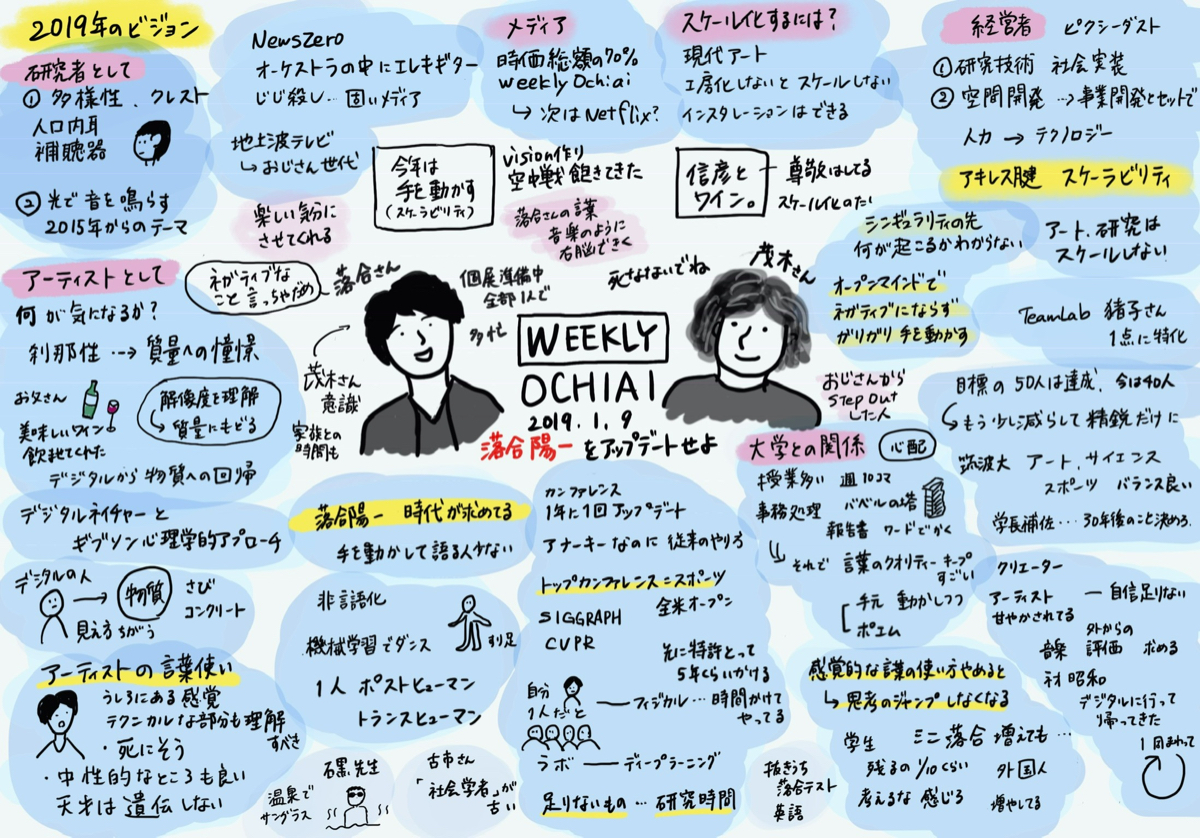 2019年のビジョン
研究者として
① 多様性、クレスト
人口内耳
補聴器
② 光で音を鳴らす
2015年からのテーマ
NewsZero
オーケストラの中にエレキギター
じじ殺し… 固いメディア
地上波テレビ
↳ おじさん世代
楽しい気分に
させてくれる
メディア
時価総額の70%
weekly Ochiai
↳ 次はNetflix?
今年は
手を動かす
(スケーラビリティ)
vision作り
空中戦 飽きてきた
落合さんの言葉
音楽のように
右脳できく
スケール化するには?
現代アート
工房化しないと スケールしない
インスタレーションはできる
信彦と
ワイン。
尊敬はしてる
スケール化のたい
経営者 ピクシーダスト
① 研究技術 社会実装
② 空間開発 …→事業開発とセットで
人力 → テクノロジー
アキレス腱 スケーラビリティ
シンギュラリティの先
何が起こるかわからない
オープンマインドで
ネガティブにならず
ガリガリ 手を動かす
アート、研究は
スケールしない
TeamLab 猪子さん
1点に特化
アーティストとして
何が気になるか?
刹那性 --→ 質量への憧憬
お父さん
美味しいワイン
飲ませてくれた
解像度を理解
質量にもどる
デジタルから 物質への回帰
デジタルネイチャーと
ギブソン心理学的アプローチ
デジタルの人
→ 物質
さび
コンクリート
見え方ちがう
アーティストの言葉使い
うしろにある感覚
テクニカルな部分も理解
すべき
・死にそう
・中性的なところも良い
天才は遺伝しない
ネガティブな
こと言っちゃだめ
落合さん
茂木さん
意識
家族との
時間も
個展準備中
全部1人で
多忙
死なないでね
茂木さん
WEEKLY
OCHIAI
2019.1.9
落合陽一をアップデートせよ
おじさんから
Step Out
した人
落合陽一 時代が求めてる
手を動かして語る人少ない
非言語化
機械学習でダンス
すり足
1人 ポストヒューマン
トランスヒューマン
石黒先生
温泉で
サングラス
古市さん
「社会学者」が
古い
カンファレンス
1年に1回アップデート
アナーキーなのに 従来のやり方
トップカンファレンス=スポーツ
SIGGRAPH 全米オープン
CVPR
先に特許とって
5年くらいかける
自分
1人だと
フィジカル… 時間かけて
やってる
ラボ ― ディープラーニング
足りないもの … 研究時間
大学との関係 心配
授業多い 週10コマ
事務処理 バベルの塔
報告書 ワードでかく
↳ それで 言葉のクオリティーキープ
すごい
手元 動かしつつ
ポエム
感覚的な言葉の使い方やめると
↳ 思考のジャンプしなくなる
学生 ミニ落合 増えても…
残るの1/10くらい 外国人
考えるな 感じろ 増やしてる
抜きうち
落合テスト
英語
目標の50人は達成、今は40人
↳ もう少し減らして 精鋭だけに
筑波大 アート、サイエンス
スポーツ バランス良い
学長補佐… 30年後のこと決める
クリエーター
アーティスト ― 自信足りない
甘やかされてる
外からの
音楽 評価 求める
ネオ昭和
デジタルに行って
帰ってきた
1回まわって